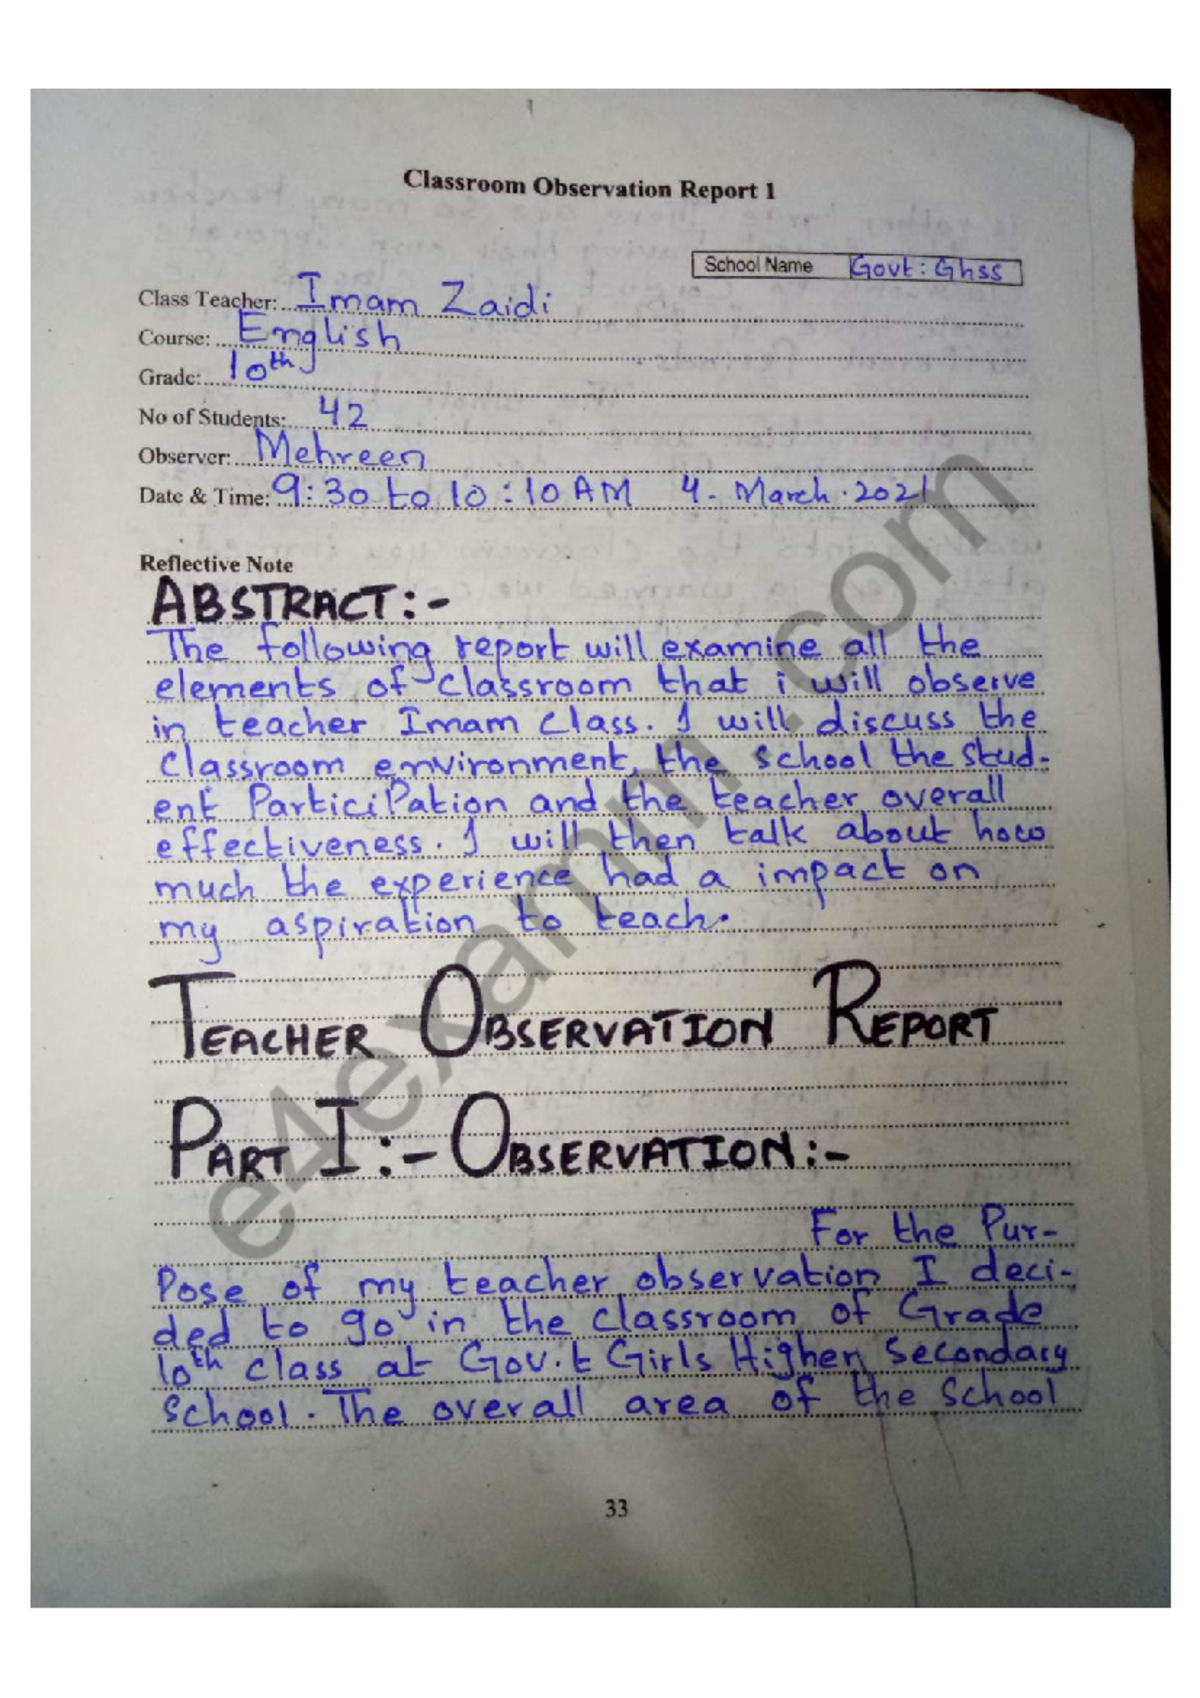 Classroom Observation Report 1
School Name Govt: Ghss
Class Teacher: Imam Zaidi
Course: English
Grade: 10th
No of Students: 42
Observer: Mehreen
Date & Time: 9:30 to 10:10 AM 4. March. 2021
Reflective Note
ABSTRACT:-
The following report will examine all the
elements of classroom that i will observe
in teacher Imam class. I will discuss the
classroom environment, the school the stud-
ent Participation and the teacher overall
effectiveness. I will then talk about how
much the experience had a impact on
my aspiration to teach.
TEACHER OBSERVATION REPORT
PART I:- OBSERVATION:-
For the Pur-
Pose of my teacher observation I deci-
ded to go in the classroom of Grade
10th class at Gov.t Girls Higher Secondary
School. The overall area of the School
33
e4examm.com